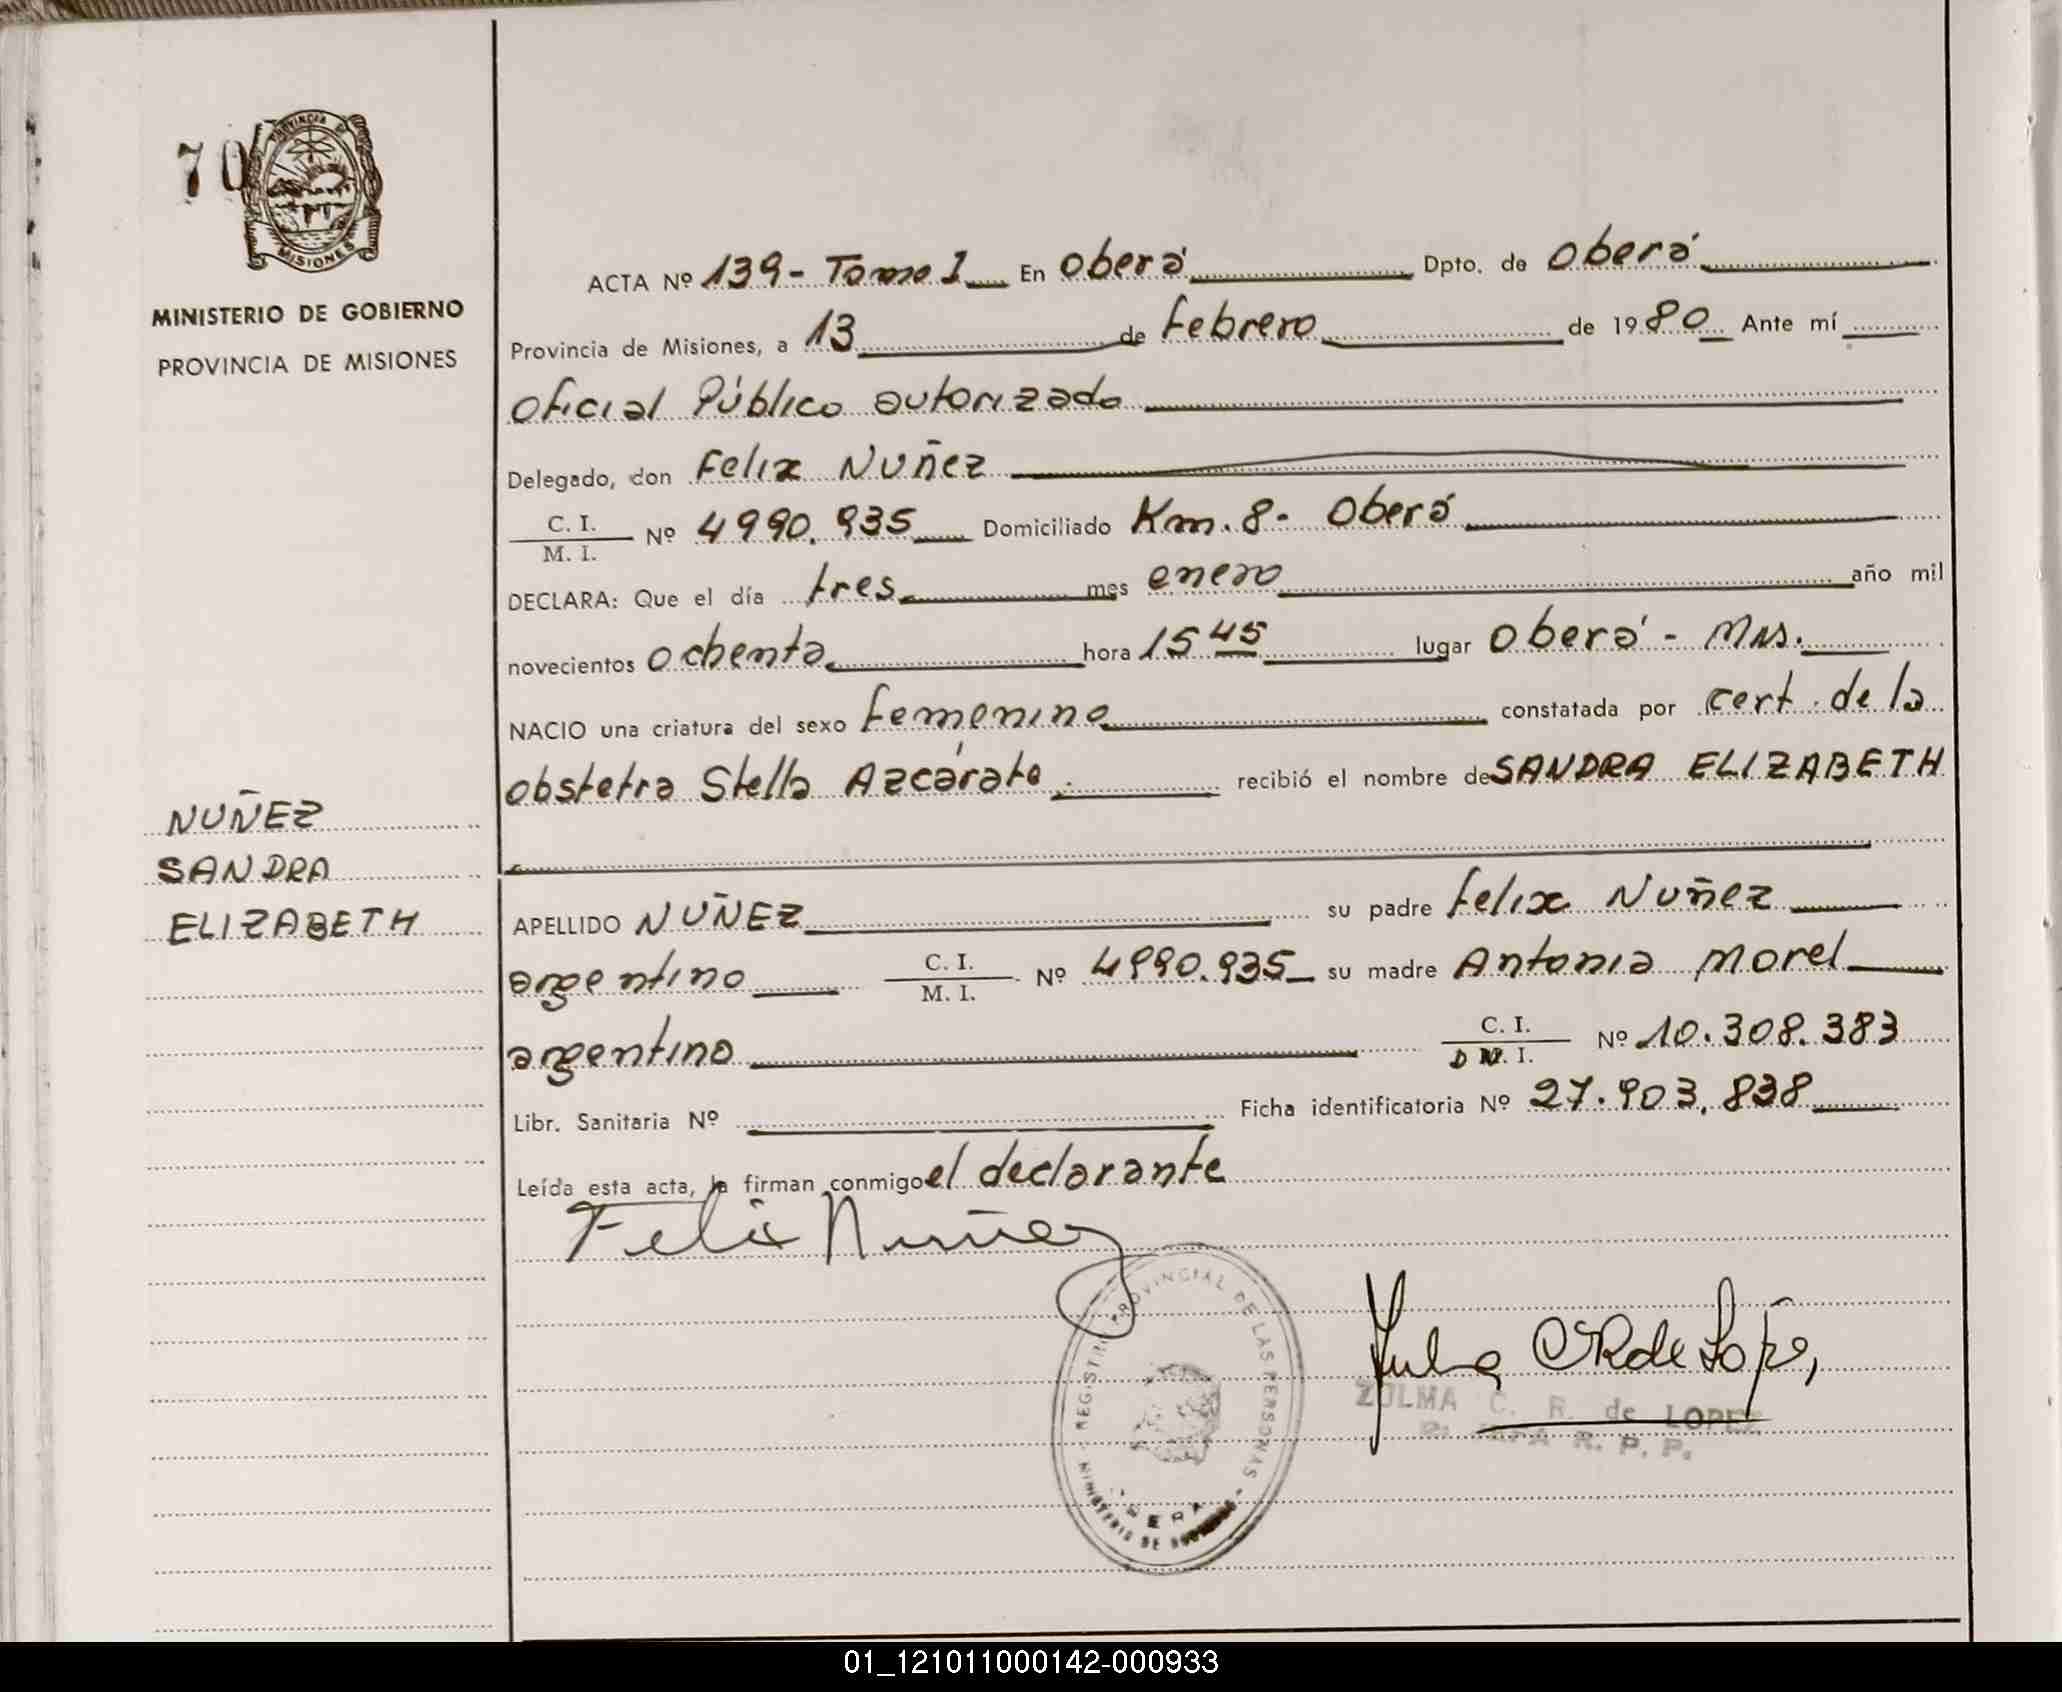 70
PROVINCIA DE
MISIONES
MINISTERIO DE GOBIERNO
PROVINCIA DE MISIONES
ACTA Nº 139- Tomo 1 En Oberá Dpto. de Oberá
Provincia de Misiones, a 13 de Febrero de 1980 Ante mí
Oficial Público autorizado
Delegado, don Felix Nuñez
C. I.
M. I. Nº 4990.935 Domiciliado Km. 8- Oberá
DECLARA: Que el día tres mes enero año mil
novecientos ochenta hora 15 45 lugar Oberá - Mns.
NACIO una criatura del sexo Femenino constatada por cert. de la
obstetra Stella Azcárate. recibió el nombre de SANDRA ELIZABETH
NUÑEZ
SANDRA
ELIZABETH
APELLIDO NUÑEZ su padre Felix Nuñez
argentino C. I.
M. I. Nº 4990.935 su madre Antonia Morel
argentina C. I.
D N. I. Nº 10.308.383
Libr. Sanitaria Nº Ficha identificatoria Nº 27.903.838
Leída esta acta, la firman conmigo el declarante
Felix Nuñez
REGISTRO PROVINCIAL DE LAS PERSONAS
MINISTERIO DE
Zulma C R de Lopez
ZULMA C. R. de LOPEZ
R. P. P.
01_121011000142-000933